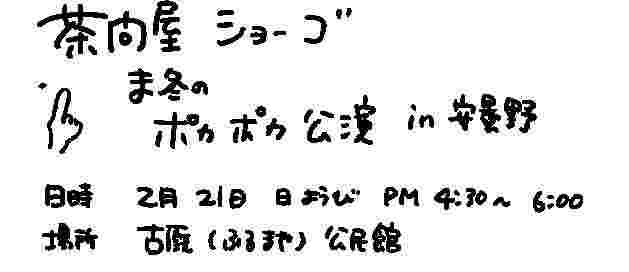 茶問屋 ショーゴ
ま冬の
ポカポカ公演 in 安曇野
日時 2月21日 日ようび PM 4:30~6:00
場所 古厩(ふるまや)公民館